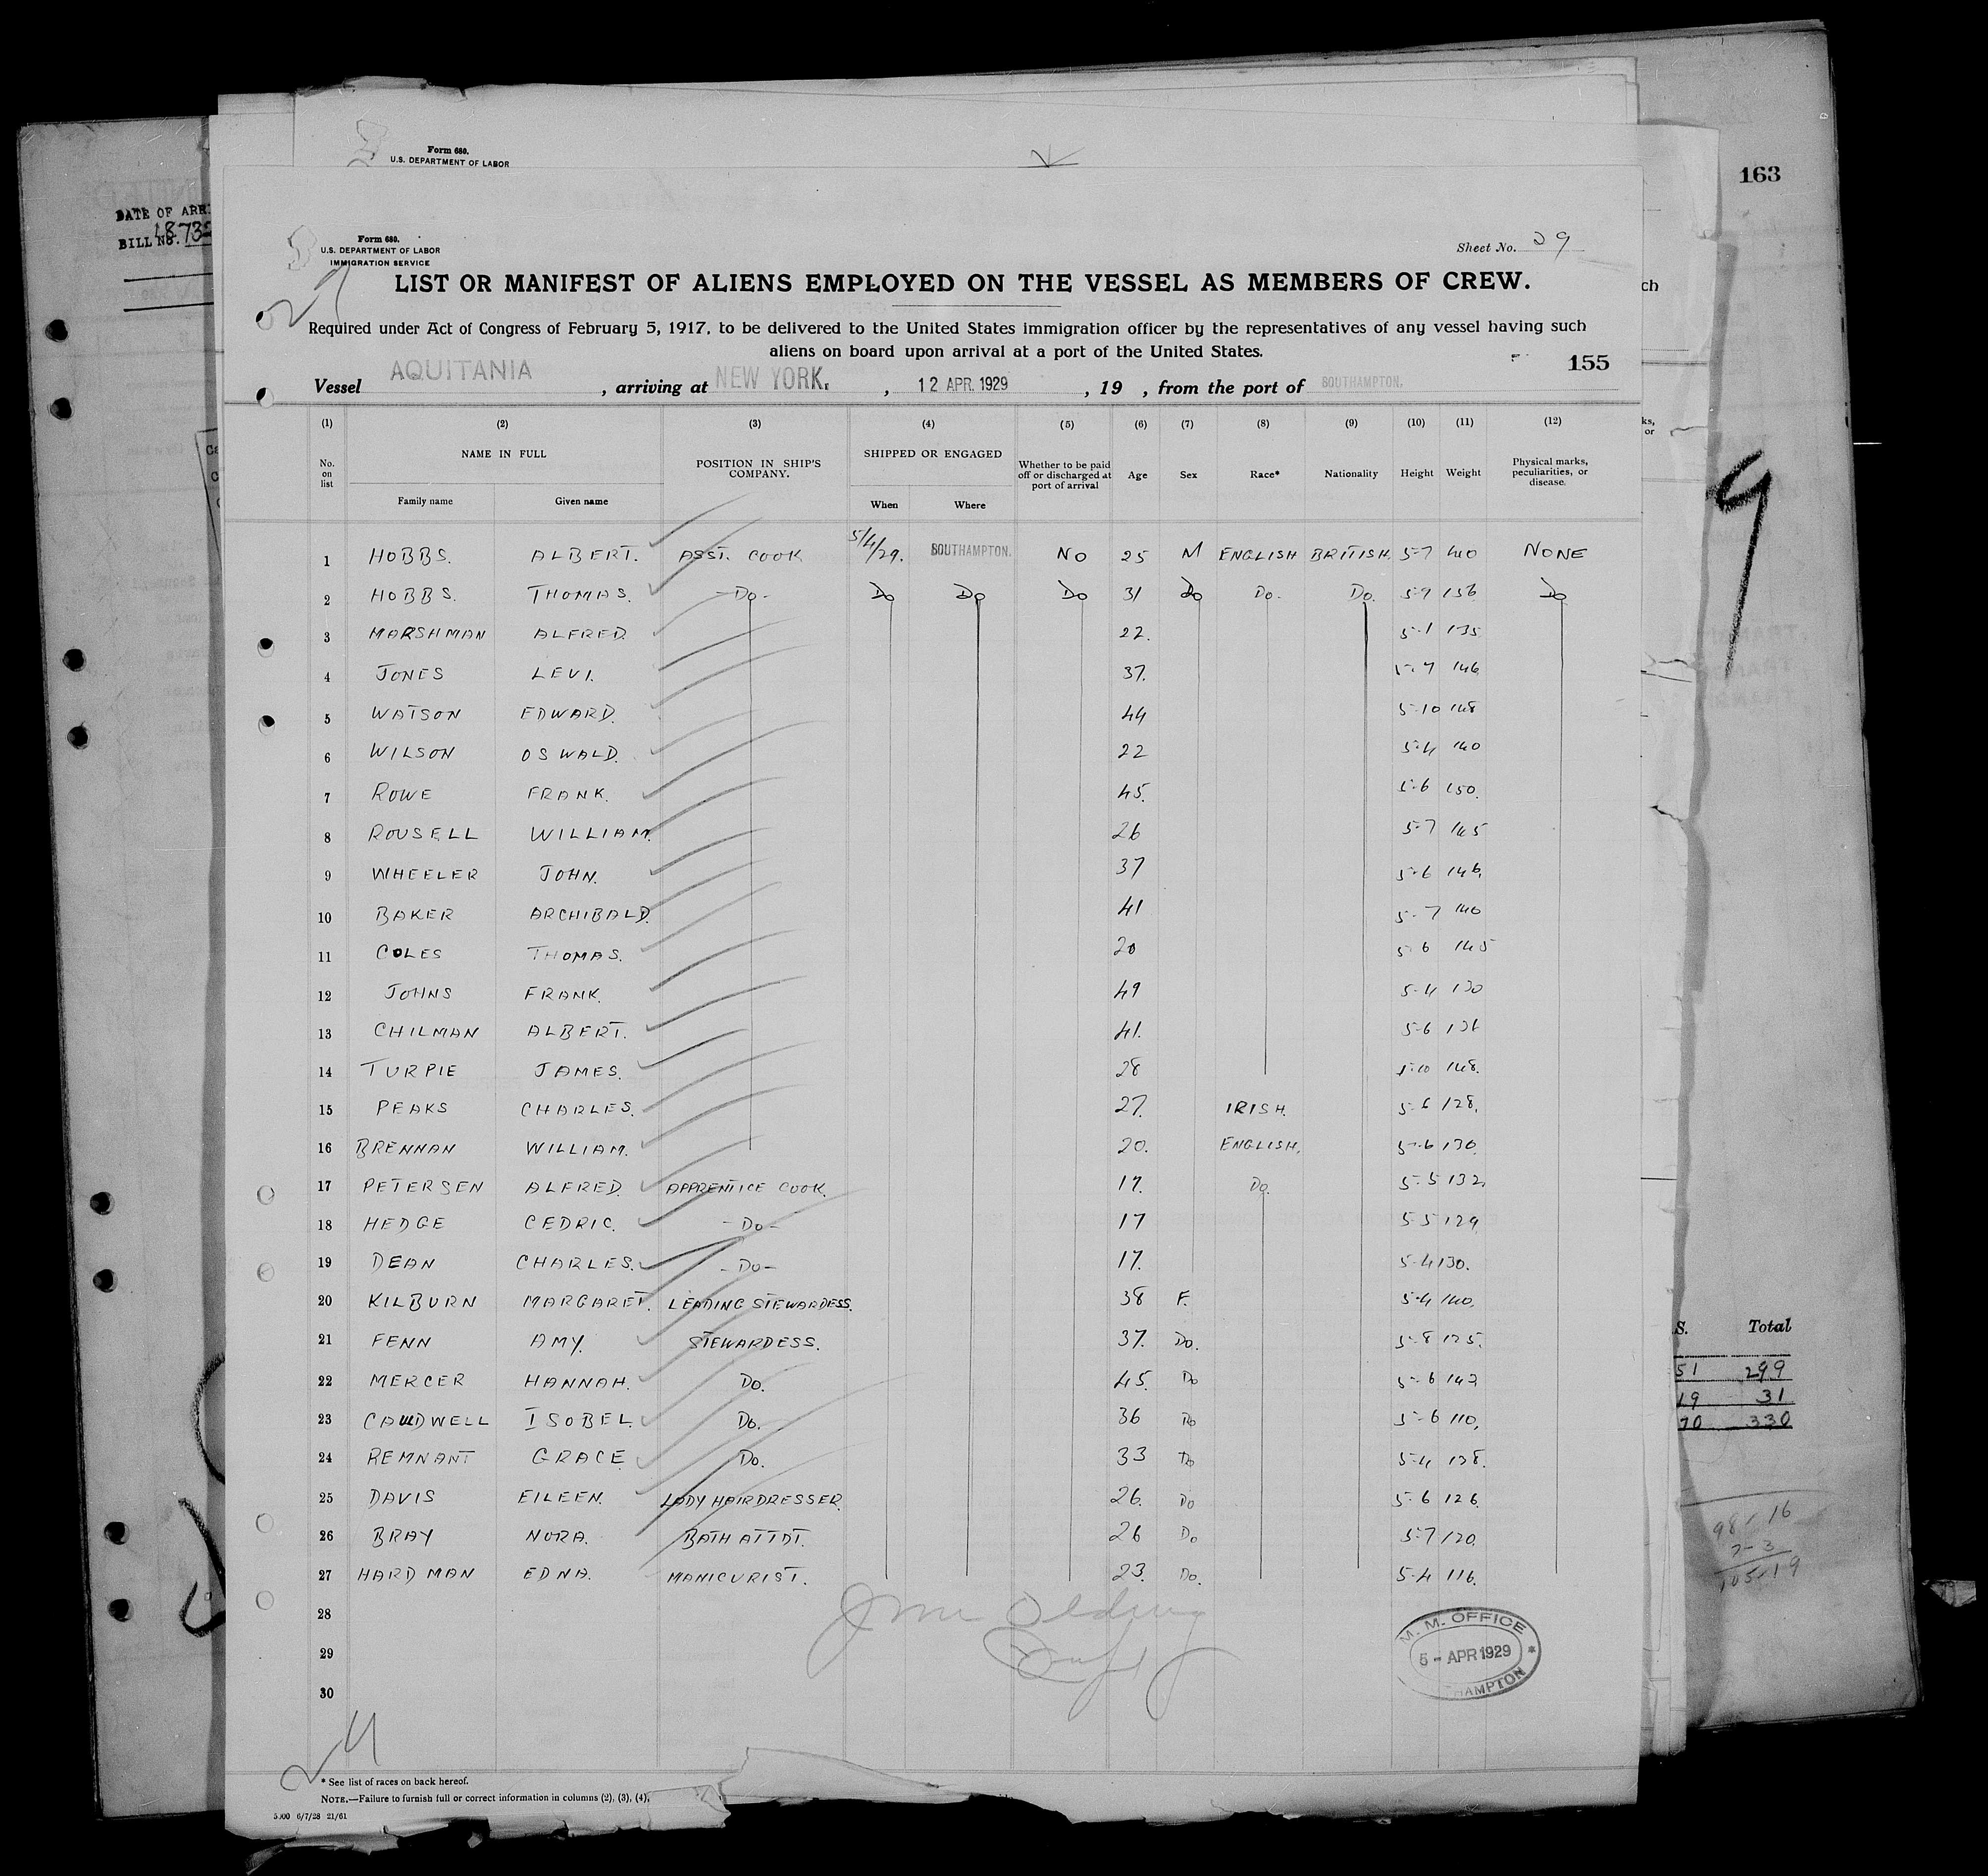 Form 680.
U.S. DEPARTMENT OF LABOR
163
DATE OF ARR
BILL No.
Form 680.
U.S. DEPARTMENT OF LABOR
IMMIGRATION SERVICE
Sheet No. 29
LIST OR MANIFEST OF ALIENS EMPLOYED ON THE VESSEL AS MEMBERS OF CREW.
Required under Act of Congress of February 5, 1917, to be delivered to the United States immigration officer by the representatives of any vessel having such
aliens on board upon arrival at a port of the United States.
155
Vessel AQUITANIA, arriving at NEW YORK, 12 APR. 1929, 19 , from the port of SOUTHAMPTON.
(1) (2) (3) (4) (5) (6) (7) (8) (9) (10) (11) (12)
No. on list NAME IN FULL POSITION IN SHIP'S COMPANY. SHIPPED OR ENGAGED Whether to be paid off or discharged at port of arrival Age Sex Race* Nationality Height Weight Physical marks, peculiarities, or disease.
Family name Given name When Where
1 HOBBS. ALBERT. ASST. COOK 5/4/29. SOUTHAMPTON. NO 25 M ENGLISH BRITISH. 5-7 140 NONE
2 HOBBS. THOMAS. -Do- Do Do Do 31 Do Do. Do. 5-9 156 Do
3 MARSHMAN ALFRED. 22. 5-1 135
4 JONES LEVI. 37. 5-7 146
5 WATSON EDWARD. 44 5-10 148
6 WILSON OSWALD. 22 5-4 140
7 ROWE FRANK. 45. 5-6 150.
8 ROUSELL WILLIAM. 26 5-7 145
9 WHEELER JOHN. 37 5-6 146.
10 BAKER ARCHIBALD. 41 5-7 140
11 COLES THOMAS. 20 5-6 145
12 JOHNS FRANK. 49 5-4 130
13 CHILMAN ALBERT. 41. 5-6 136
14 TURPIE JAMES. 28 5-10 148.
15 PEAKS CHARLES. 27. IRISH. 5-6 128.
16 BRENNAN WILLIAM. 20. ENGLISH. 5-6 130.
17 PETERSEN ALFRED. APPRENTICE COOK. 17. Do. 5-5 132.
18 HEDGE CEDRIC. -Do- 17 5-5 129
19 DEAN CHARLES. -Do- 17. 5-4 130.
20 KILBURN MARGARET. LEADING STEWARDESS. 38 F. 5-4 140.
21 FENN AMY. STEWARDESS. 37. Do. 5-8 135.
22 MERCER HANNAH. Do. 45. Do 5-6 142
23 CAUDWELL ISOBEL. Do. 36 Do 5-6 110.
24 REMNANT GRACE. Do. 33 Do 5-4 128.
25 DAVIS EILEEN. LADY HAIRDRESSER. 26. Do 5-6 126.
26 BRAY NORA. BATH ATTDT. 26 Do 5-7 120.
27 HARDMAN EDNA. MANICURIST. 23. Do. 5-4 116.
28
29
30
M. M. OFFICE
5 - APR 1929
HAMPTON
S. Total
51 299
19 31
70 330
* See list of races on back hereof.
NOTE.—Failure to furnish full or correct information in columns (2), (3), (4),
6/7/28 21/61